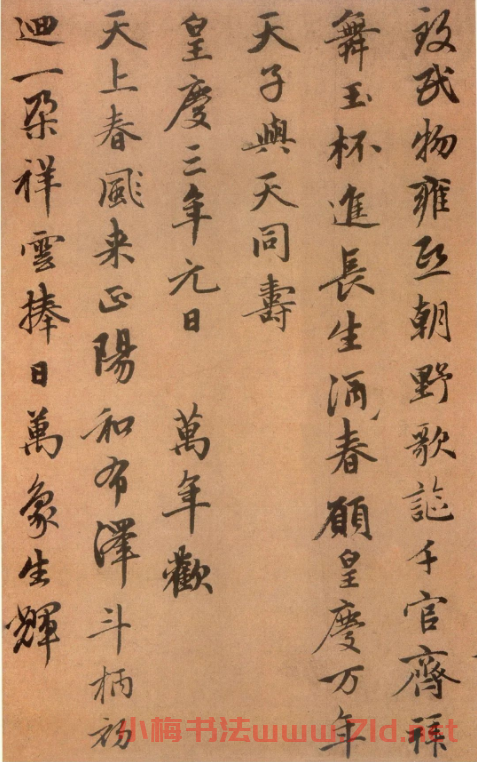 致民物雍熙朝野歌謳千官齊拜
舞玉杯進長生酒春願皇慶万年
天子與天同壽
皇慶三年元日 萬年歡
天上春風来正陽和布澤斗柄初
迴一朶祥雲捧日萬象生輝
小梅书法www.7ld.net